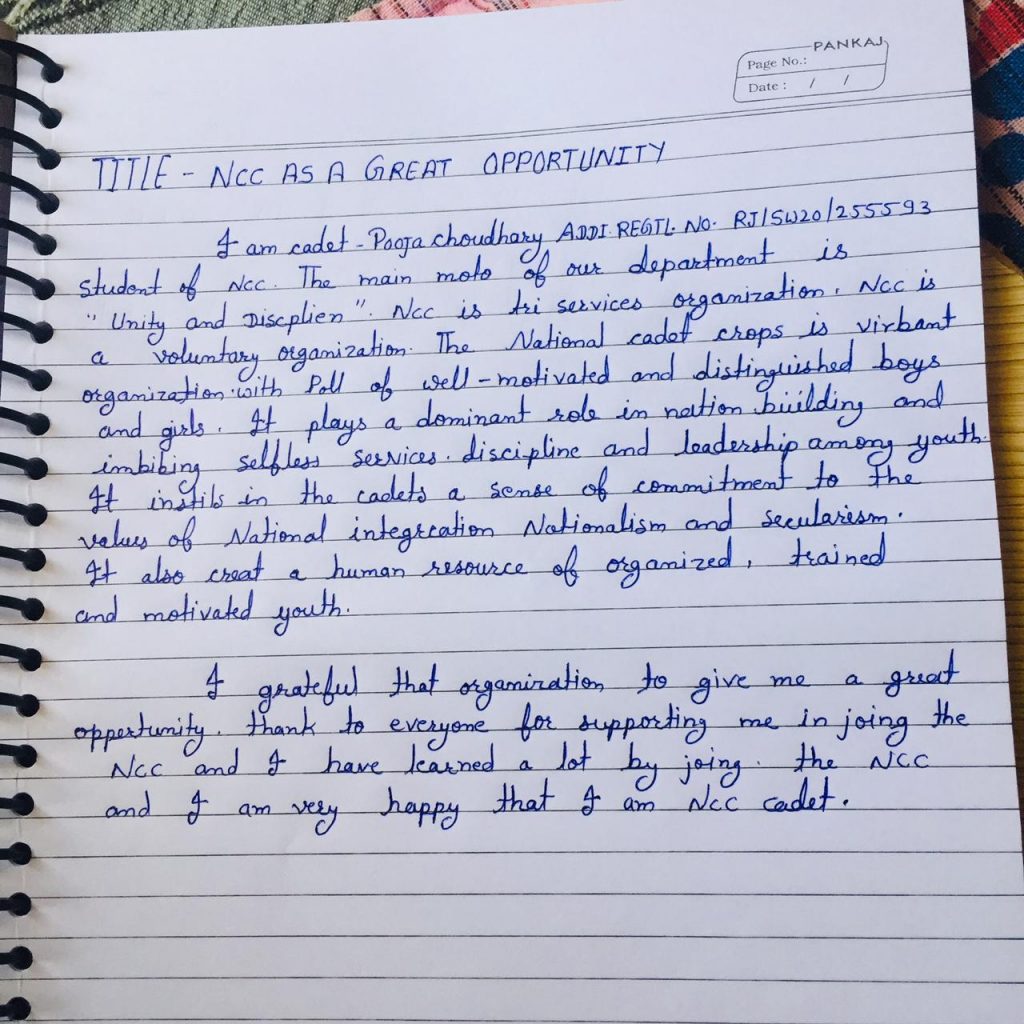 PANKAJ
Page No.:
Date : / /
TITLE - NCC AS A GREAT OPPORTUNITY
I am cadet - Pooja choudhary ADDI. REGTL. NO. RJ/SW20/255593
student of NCC. The main moto of our department is
" Unity and Discplien ". NCC is tri services organization. NCC is
a voluntary organization. The National cadet crops is virbant
organization with Poll of well-motivated and distinguished boys
and girls. It plays a dominant role in nation building and
imbibing selfless services. discipline and leadership among youth.
It instils in the cadets a sense of commitment to the
values of National integrcation Nationalism and secularism.
It also creat a human resource of organized, trained
and motivated youth.
I grateful that organization to give me a great
opportunity. thank to everyone for supporting me in joing the
NCC and I have learned a lot by joing. the NCC
and I am very happy that I am NCC cadet.